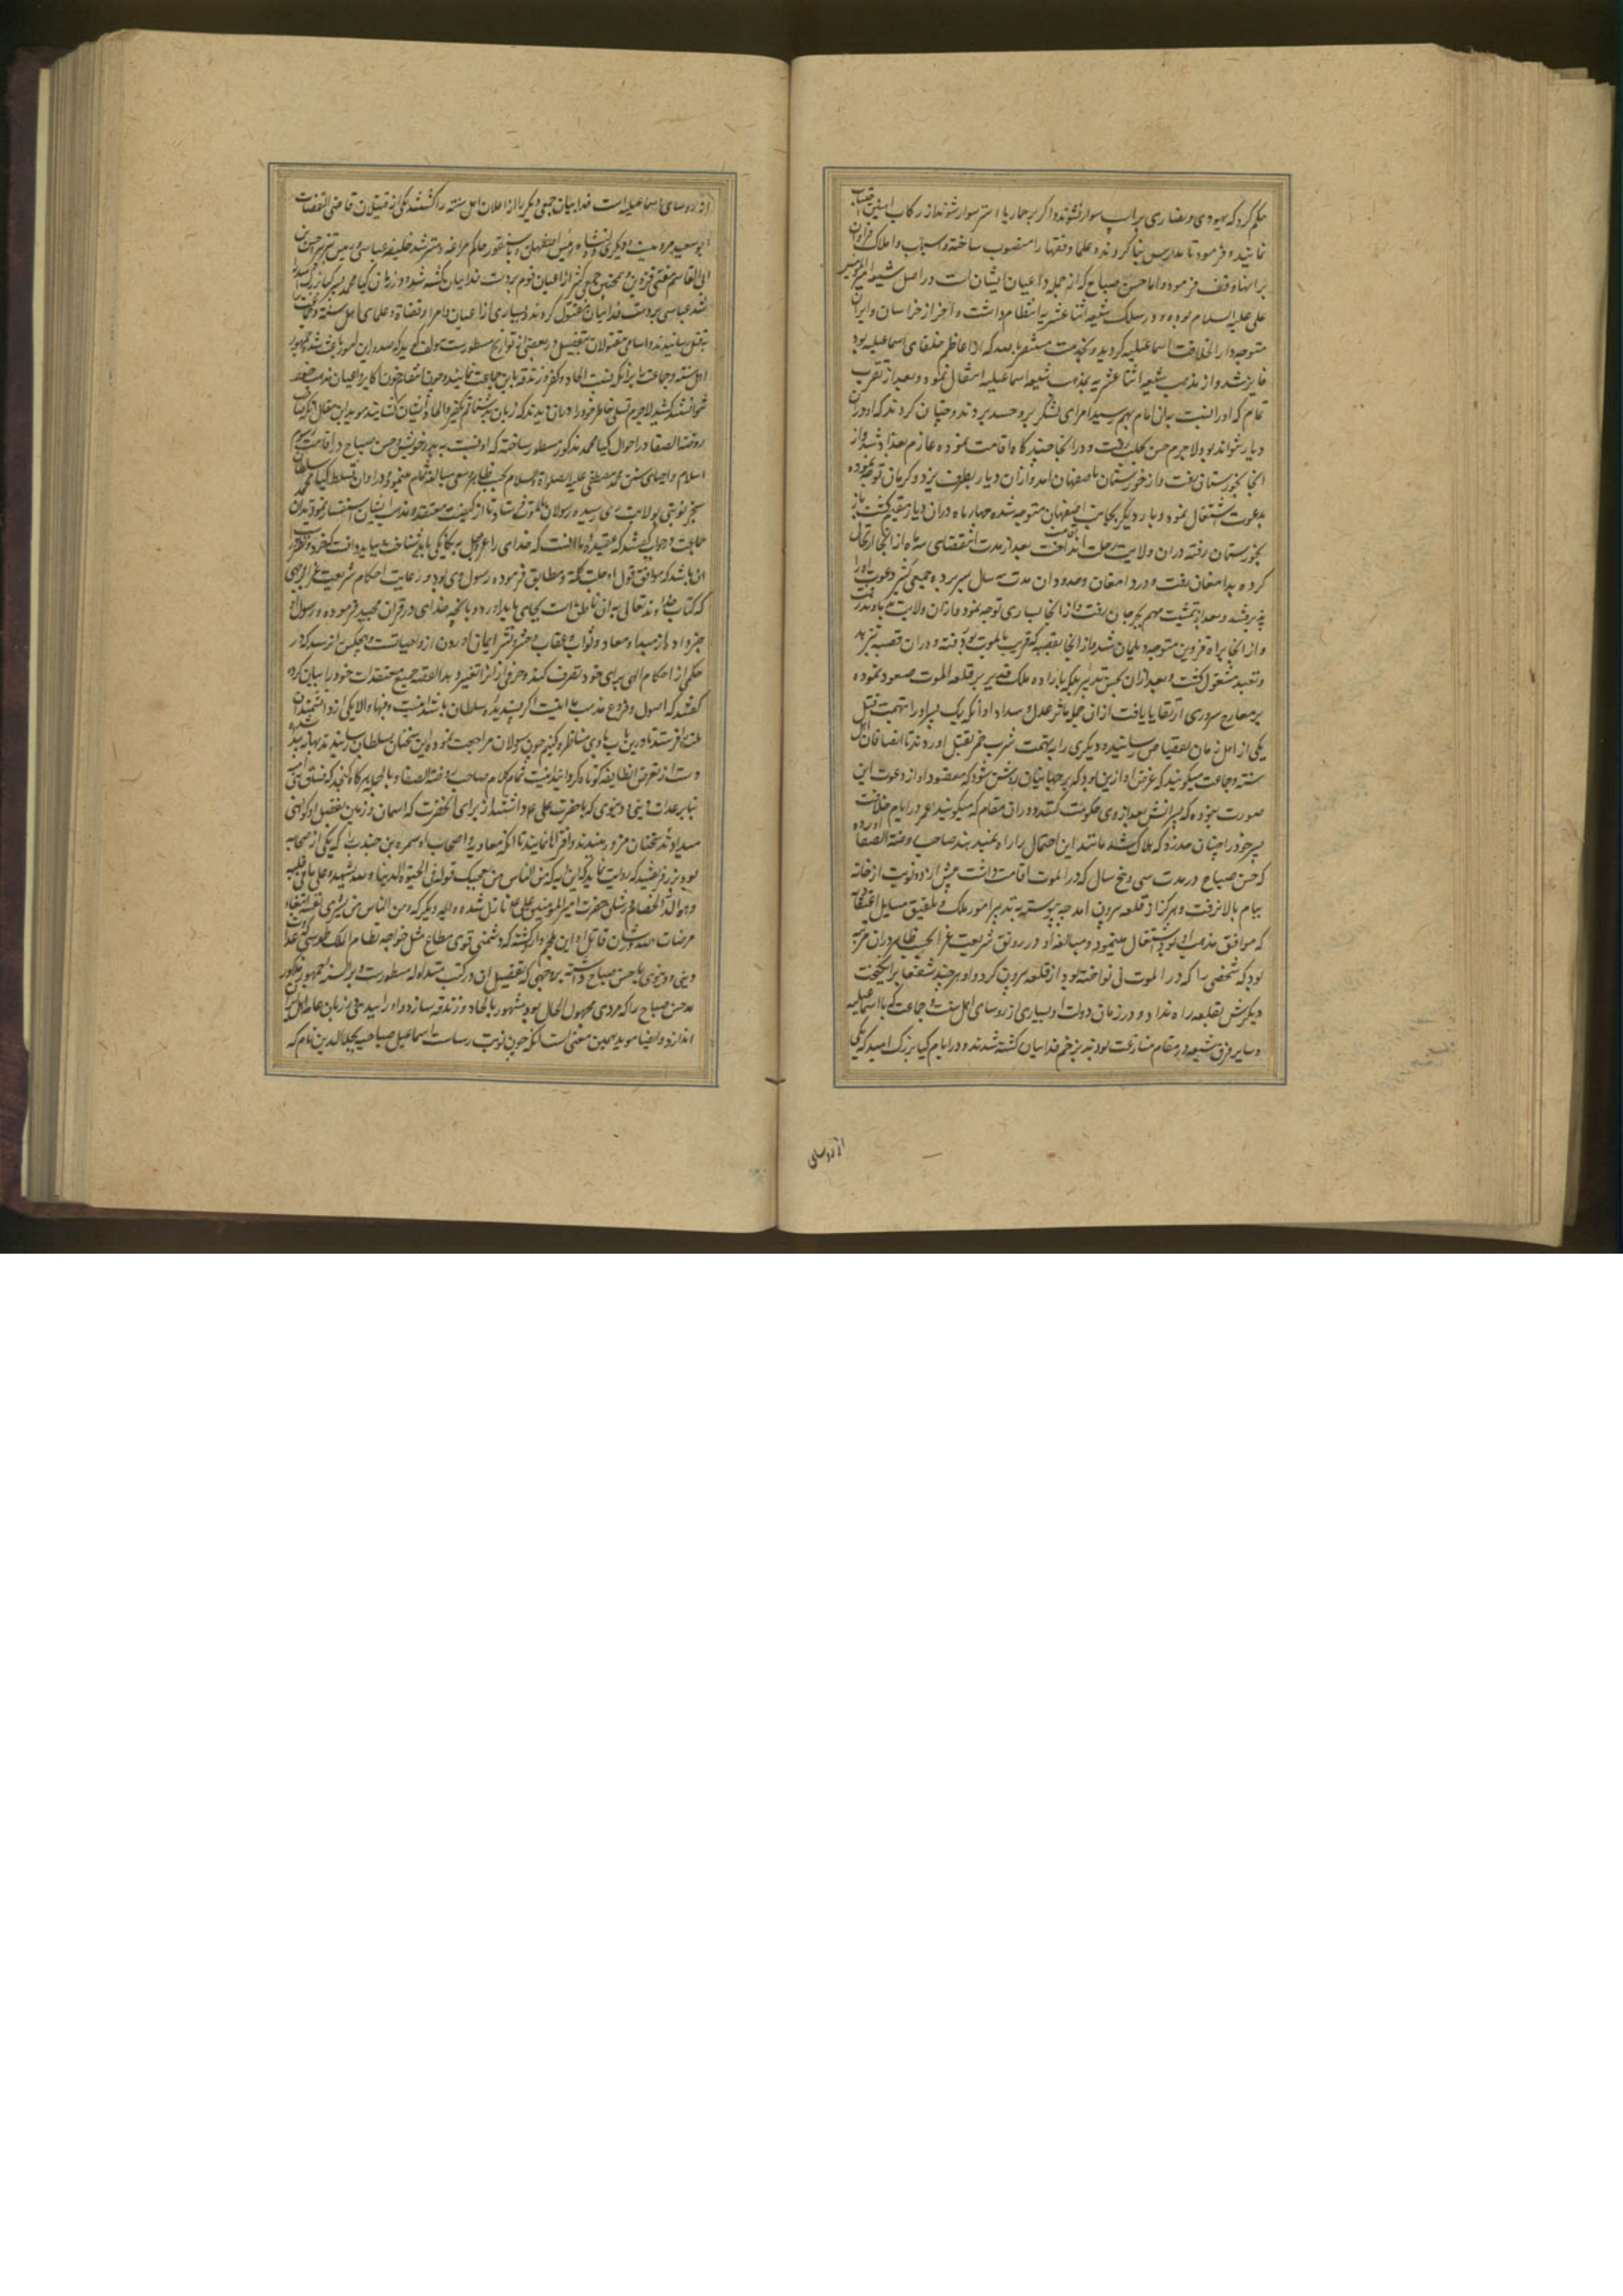 حکم کرد که یهودی و نصاری بر اسب سوار نشوند و اگر بر حمار یا استر سوار شوند از رکاب آهنین اجتناب
نمایند و فرمود تا مدارس بنا کردند و علما و فقها را منصوب ساخته و اسباب و املاک فراوان
بر آنها وقف فرمود و اما حسن صباح که از جمله داعیان ایشان است در اصل شیعه امیرالمومنین
علی علیه السلام بوده و در سلک شیعه اثنا عشریه انتظام داشت و آخر از خراسان و ایران
متوجه دار الخلافت اسماعیلیه گردید و بخدمت مستنصر بالله که از اعاظم خلفای اسماعیلیه بود
فایز شد و از مذهب شیعه اثنا عشریه بمذهب شیعه اسماعیلیه انتقال نمود و بعد از تقرب
تمام که او را نسبت بان امام بهم رسید امرای لشکر برو حسد بردند و چنان کردند که او در ان
دیار نتواند بود لاجرم حسن بحلب رفت و در انجا چند گاه اقامت نموده عازم بغداد شد و از
انجا بخوزستان رفت و از خوزستان باصفهان امد و از ان دیار بطرف یزد و کرمان توجه نموده
بدعوت اشتغال نمود و بار دیگر بجانب اصفهان متوجه شده چهار ماه دران دیار مقیم گشت باز
بخوزستان رفته دران ولایت رحل اقامت انداخت بعد از مدت انقضای سه ماه از انجا ارتحال
کرده بدامغان رفت و در دامغان و حدود ان مدت سه سال بسر برده جمعی کثیر دعوت او را
پذیرفتند و بعد از تمشیت مهم بجرجان رفت و از انجا بساری توجه نمود و ازان ولایت بدماوند رفت
و از انجا براه قزوین متوجه دیلمان شد و از انجا بقصبه که قریب بالموت بود رفته و دران قصبه بتزهد
و تعبد مشغول گشت و بعد ازان بحسن تدبیر بلکه باراده ملک قدیر بر قلعه الموت صعود نموده
بر معارج سروری ارتقا یافت از ان جمله ماثر عدل و سداد او انکه یک پسر او را بتهمت قتل
یکی از اهل زمان بقصاص رسانید و دیگری را به تهمت شرب خمر بقتل اورد و ندانا انصافان اهل
سنت و جماعت میگویند که غرض او ازین بود که بر جهانیان روشن شود که مقصود او از دعوت این
صورت نبوده که پسرانش بعد از وی حکومت کنند و دران مقام که میگویند عمر در ایام خلافت
پسر خود را چنان حد زد که هلاک شد مانند این احتمال را راه نمیدهند صاحب روضة الصفا آورده
که حسن صباح در مدت سی و پنج سال که در الموت اقامت داشت بیش از دو نوبت از خانه
ببام بالا نرفت و هرگز از قلعه بیرون نامد چه پیوسته به تدبیر امور ملک و تلفیق مسایل اعتقادیه
که موافق مذهب او بود اشتغال مینمود و مبالغه او در رونق شریعت غرا بحسب ظاهر بدان مرتبه
بود که شخصی را که در الموت نی نواخته بود از قلعه بیرون کرد و او هر چند شفعا برانگیخت
دیگرش بقلعه راه نداد و در زمان دولت او بسیاری از روسای اهل سنت و جماعت که با اسماعیلیه
و سایر فرق شیعه در مقام منازعت بودند بزخم فداییان کشته شدند و در ایام کیا بزرگ امید که یکی
از روسای
از روسای اسماعیلیه است فداییان جمعی دیگر را از اعلان اهل سنه را کشتند یکی از قتیلان قاضی القضات
ابو سعید هروی است و دیگری دولتشاه رئیس اصفهان و اقسنقور حاکم مراغه و مسترشد خلیفه عباسی و رییس تبریز و حسن
ابی القاسم مفتی قزوین و همچنین جمعی کثیر از اعیان قوم بر دست فداییان کشته شد و در زمان کیا محمد پسر کیا بزرگ امید
شد عباسی بر دست فداییان مقتول گردید و بسیاری از اعیان و امرا و قضاة و علمای اهل سنه و جماعت
بقتل رسانیدند و اسامی مقتولان بتفصیل در بعضی از تواریخ مسطورست مولف گوید که صدور این امور باعث شد جمهور
اهل سنه و جماعت را بر انکه نسبت الحاد و کفر و زندقه باین جماعت نمایند و چون انتقام خون اکابر و اعیان مذهب خود
نتوانستند کشید لاجرم تسلی خاطر خود را دران دیدند که زبان بشتم و تکفیر و الحاد ایشان گشایند موید این مقال انکه صاحب
روضة الصفا در احوال کیا محمد مذکور مسطور ساخته که او نسبت به پدر خویش و حسن صباح در اقامت رسوم
اسلام و احیای سنن محمد مصطفی علیه الصلاة و السلام بحسب ظاهر سعی مبالغه تمام مینمود و در اوان تسلط کیا محمد سلطان
سنجر نوبتی بولایت ری رسیده رسولان بالموت فرستاد تا از کیفیت معتقد و مذهب ایشان استفسار نمودند ان
جماعت در جواب گفتند که عقیده ما انست که خدای را عز و جل بیگانگی باید شناخت و بباید دانست که خرد و نظر صواب
ان باشد که موافق قول او جلت کلمته و مطابق فرموده رسول وی بود و رعایت احکام شریعت غرا بر وجهی
که کتاب خداوند تعالی بدان ناطق است بجای باید اورد و بانچه خدای در قران مجید فرموده و رسول او
خبر داده از مبداء و معاد و ثواب و عقاب و حشر و نشر ایمان اوردن از واجباتست و هیچکس را نرسد که در
حکمی از احکام الهی برای خود تصرف کند و حرفی از انرا تغییر دهد القصه جمیع معتقدات خود را بیان کرده
گفتند که اصول و فروع مذهب ما اینست اگر پسندیده سلطان باشد اینست و فبها و الا یکی از دانشمندان
ملت را فرستد تا درین باب با وی مناظره کنیم چون رسولان مراجعت نموده این سخنان بسلطان رسانیدند بهانه شده
دست از تعرض انطایفه کوتاه گردانید اینست تمام کلام صاحب روضة الصفا و بالجمله هر گاه
بنا بر عداوت دینی و دنیوی که با حضرت علی ع داشتند از برای انحضرت که اسمان و زمین بفضل او گواهی
میداده اند سخنان مزور بندند و افترا نمایند تا انکه معاویه و اصحاب او سمره بن جندب را که یکی از صحابه
بود بزر فریفتند که روایت نماید که این ایه که من الناس من یعجبک قوله فی الحیوة الدنیا و یشهد الله علی ما فی قلبه
و هو الد الخصام در شان حضرت امیر المومنین علی ع نازل شده و ایه دیگر که و من الناس من یشری نفسه ابتغاء
مرضات الله در شان قاتل او ابن ملجم وارد گشته گر دشمنی قوی مطاع مثل خواجه نظام الملک طوسی که عداوت
دینی و دنیوی با حسن صباح داشته بر وجهی که تفصیل ان در کتب متداوله مسطورست و بر السنه جمهور مذکور
مر حسن صباح را که مردی مجهول الحال بود مشهور بالحاد و زندقه سازد و او را بیدینی بر زبان عامه اهل سنت
اندازد و ایضا موید همین معنی است انکه چون نوبت ریاست اسماعیل صباحیه بجلال الدین نام که